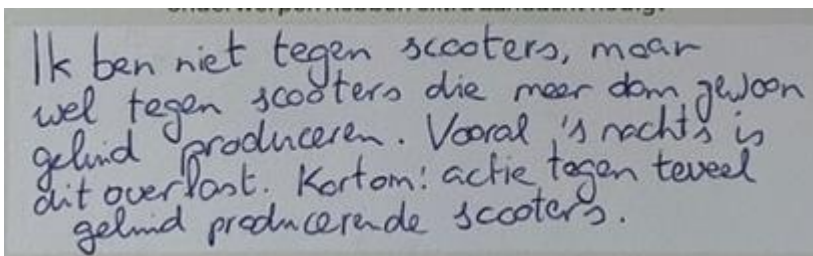 Ik ben niet tegen scooters, maar
wel tegen scooters die meer dan gewoon
geluid produceren. Vooral 's nachts is
dit overlast. Kortom: actie tegen teveel
geluid producerende scooters.